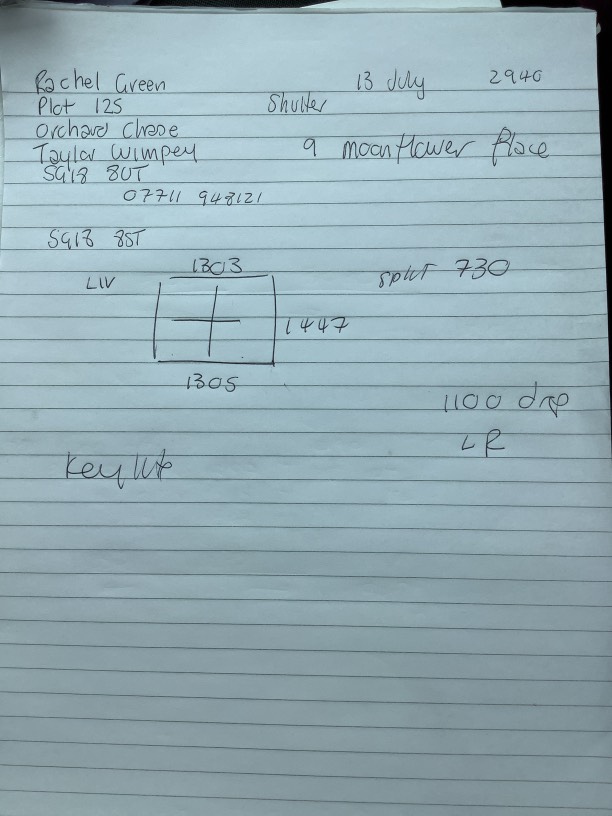 Rachel Green 13 July 2940
Plot 125 Shutter
Orchard Chase
Taylor Wimpey 9 moonflower Place
SG18 8UT
07711 948121
SG18 8ST
1303
LIV split 730
1447
1305
1100 drop
LR
Keylite